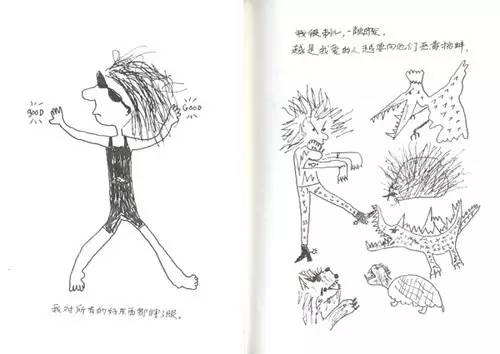 GOOD GOOD
我对所有的好东西都瞎了眼。
我很刺儿,一
越是我爱的人越要向他们恶毒挑衅